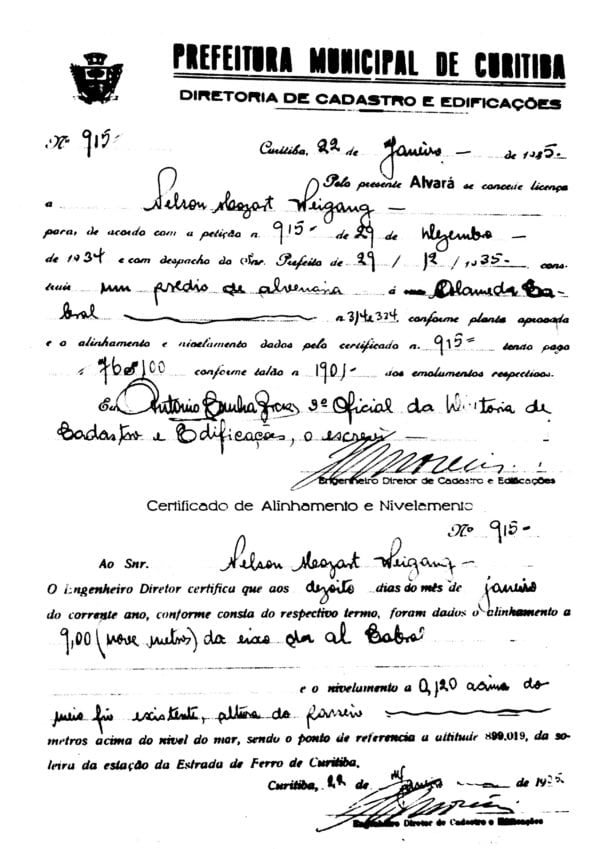 PREFEITURA MUNICIPAL DE CURITIBA
DIRETORIA DE CADASTRO E EDIFICAÇÕES
Nº 915-
Curitiba, 22 de Janeiro — de 1935-
Pelo presente Alvará se concede licença
a Nelson Mozart Weigang —
para, de acordo com a petição n. 915- de 29 de Dezembro —
de 1934 e com despacho do Snr. Prefeito de 29 / 12 / 1935- cons-
truir um predio de alvenaria á Alameda Ca-
bral — n. 314e324, conforme planta aprovada
e o alinhamento e nivelamento dados pelo certificado n. 915- tendo pago
conforme talão n 190/- dos emolumentos respectivos.
Eu, Antonio Cunha 3º Oficial da Diretoria de
Cadastro e Edificações, o escrevi —
Engenheiro Diretor de Cadastro e Edificações
Certificado de Alinhamento e Nivelamento
Nº 915-
Ao Snr. Nelson Mozart Weigang —
O Engenheiro Diretor certifica que aos dezoito dias do mês de janeiro
do corrente ano, conforme consta do respectivo termo, foram dados o alinhamento a
9,00 (nove metros) do eixo da al Cabral
e o nivelamento a 0,120 acima do
meio fio existente, altura do passeio —
metros acima do nivel do mar, sendo o ponto de referencia a altitude 899,019, da so-
leira da estação da Estrada de Ferro de Curitiba.
Curitiba, 22 de Janeiro — de 1935
Engenheiro Diretor de Cadastro e Edificações